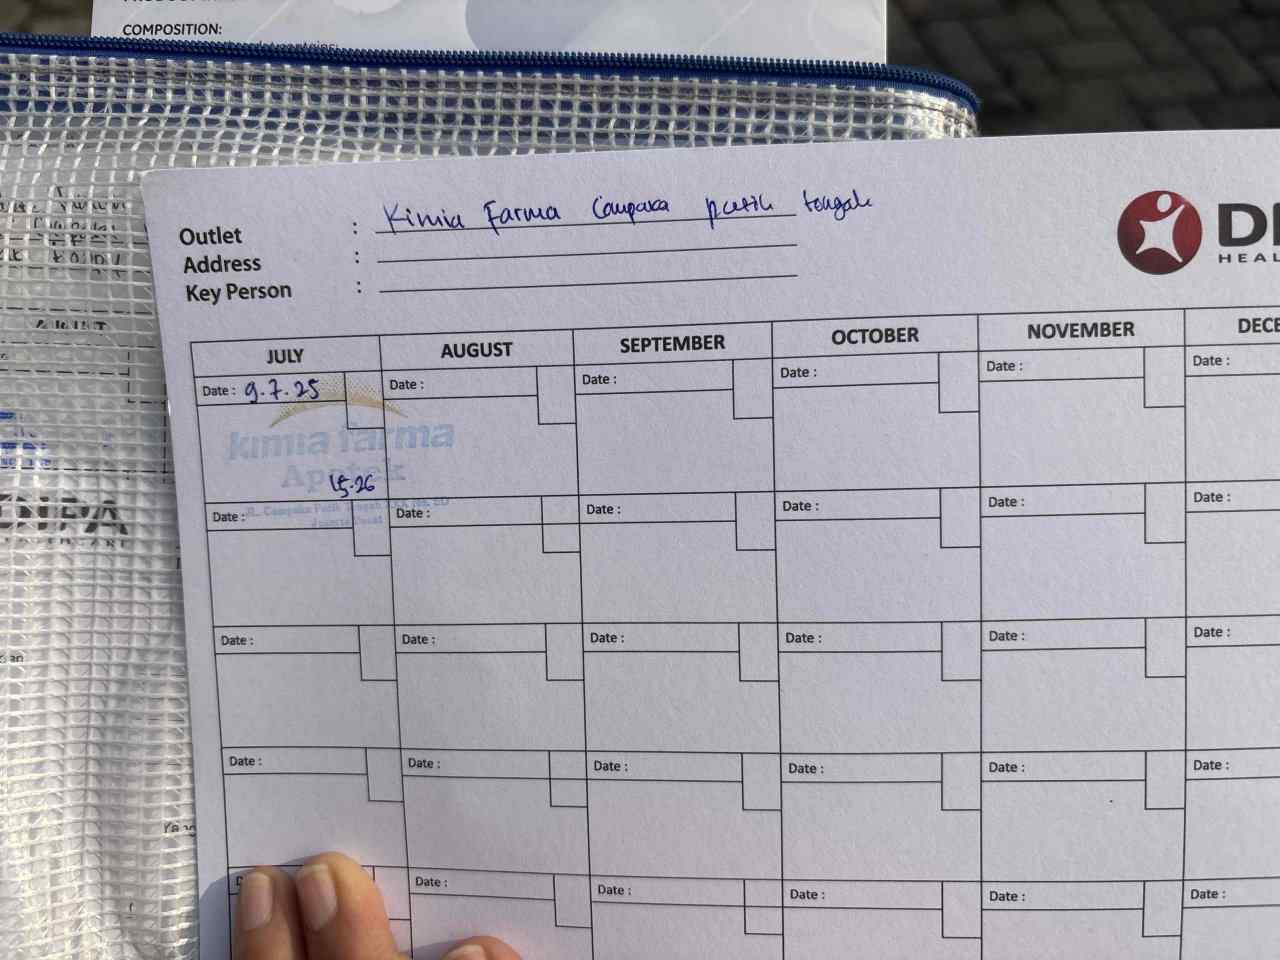 COMPOSITION:
Outlet : Kimia Farma Campaka putih tengah
Address :
Key Person :
HEAL
JULY AUGUST SEPTEMBER OCTOBER NOVEMBER DECE
Date : 9.7.25 Date : Date : Date : Date : Date :
kimia farma
Apotek
15.26
Jl. Cempaka Putih Tengah
Date : Date : Date : Date : Date : Date :
Date : Date : Date : Date : Date : Date :
Date : Date : Date : Date : Date : Date :
Date : Date : Date : Date :